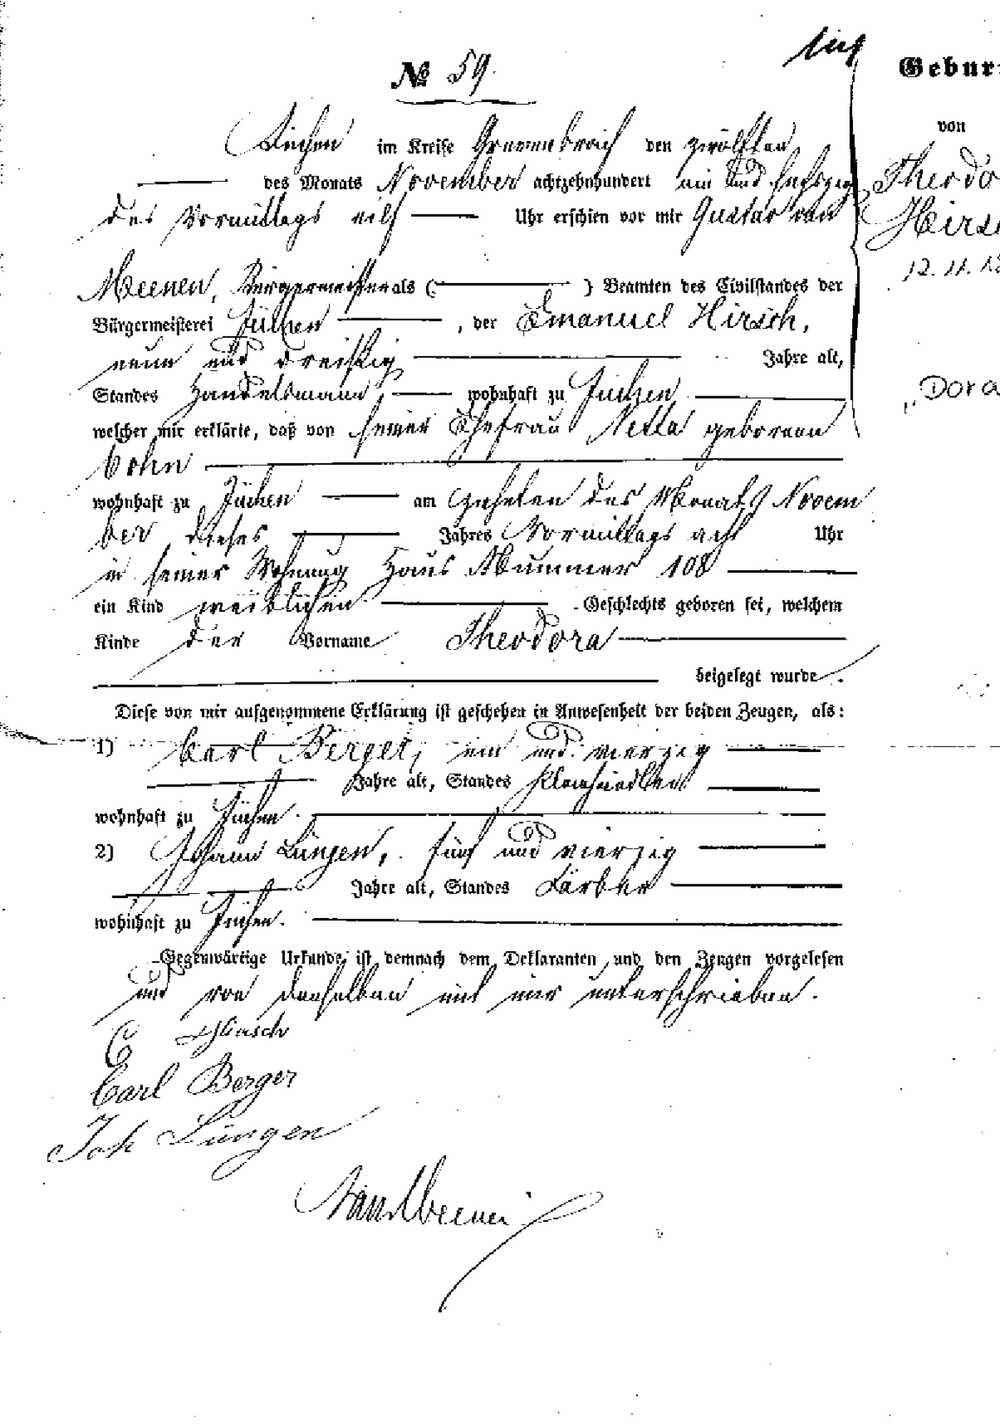 № 59.
Geburt
von
Jüchen im Kreise Grevenbroich den zwölften
des Monats November achtzehnhundert ein und sechszig
Theodo
des Vormittags eilf Uhr erschien vor mir Gustav van
Hirs
12. 11.
Meenen, Bürgermeister als ( ) Beamten des Civilstandes der
Bürgermeisterei Jüchen, der Emanuel Hirsch,
neun und dreißig Jahre alt,
Standes Handelsmann wohnhaft zu Jüchen
„Dora
welcher mir erklärte, daß von seiner Ehefrau Netta geborenen
Cohn
wohnhaft zu Jüchen am zehnten des Monats Novem
ber dieses Jahres Vormittags acht Uhr
in seiner Wohnung Haus Nummer 108
ein Kind weiblichen Geschlechts geboren sei, welchem
Kinde der Vorname Theodora
beigelegt wurde.
Diese von mir aufgenommene Erklärung ist geschehen in Anwesenheit der beiden Zeugen, als:
1) Carl Berger, ein und vierzig
Jahre alt, Standes
wohnhaft zu Jüchen.
2) Johann Lüngen, fünf und vierzig
Jahre alt, Standes Färber
wohnhaft zu Jüchen.
Gegenwärtige Urkunde ist demnach dem Deklaranten und den Zeugen vorgelesen
und von denselben mit mir unterschrieben.
E Hirsch
Carl Berger
Joh Lüngen